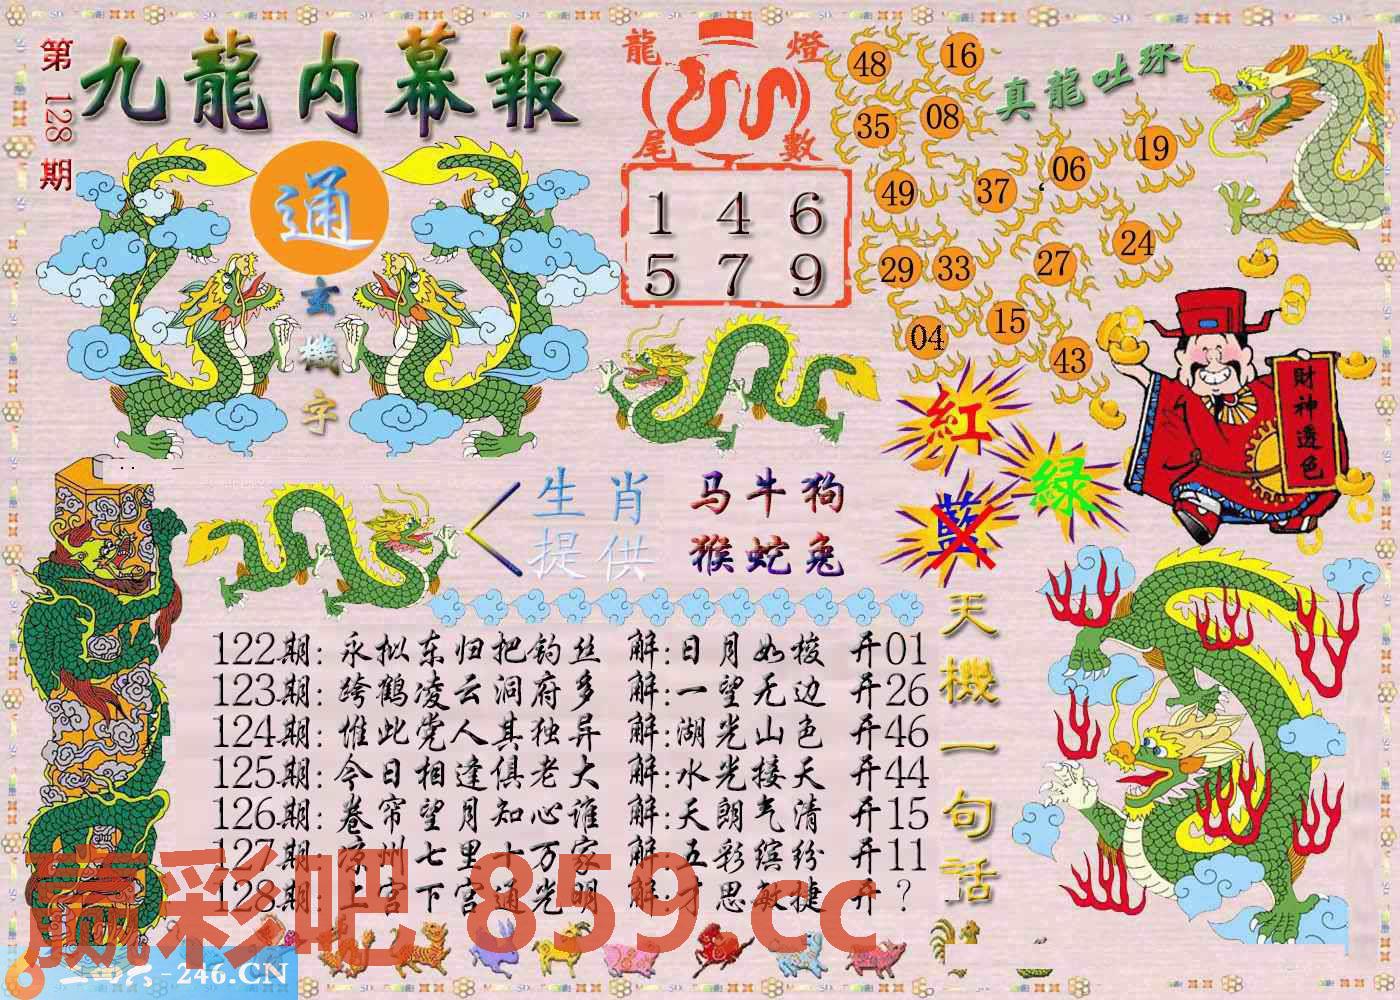 第128期
九龍内幕報
通
玄機字
龍燈
尾數
1 4 6
5 7 9
真龍吐珠
48 16
35 08
49 37 06 19
29 33 27 24
04 15 43
財神透色
紅
绿
藍
生肖
提供
马牛狗
猴蛇兔
天機一句話
122期:永拟东归把钓丝 解:日月如梭 开01
123期:跨鹤凌云洞府多 解:一望无边 开26
124期:惟此党人其独异 解:湖光山色 开46
125期:今日相逢俱老大 解:水光接天 开44
126期:卷帘望月知心谁 解:天朗气清 开15
127期:凉州七里十万家 解:五彩缤纷 开11
128期:上宫下宫通光明 解:才思敏捷 开？
赢彩吧 859.cc
二四六-246.CN